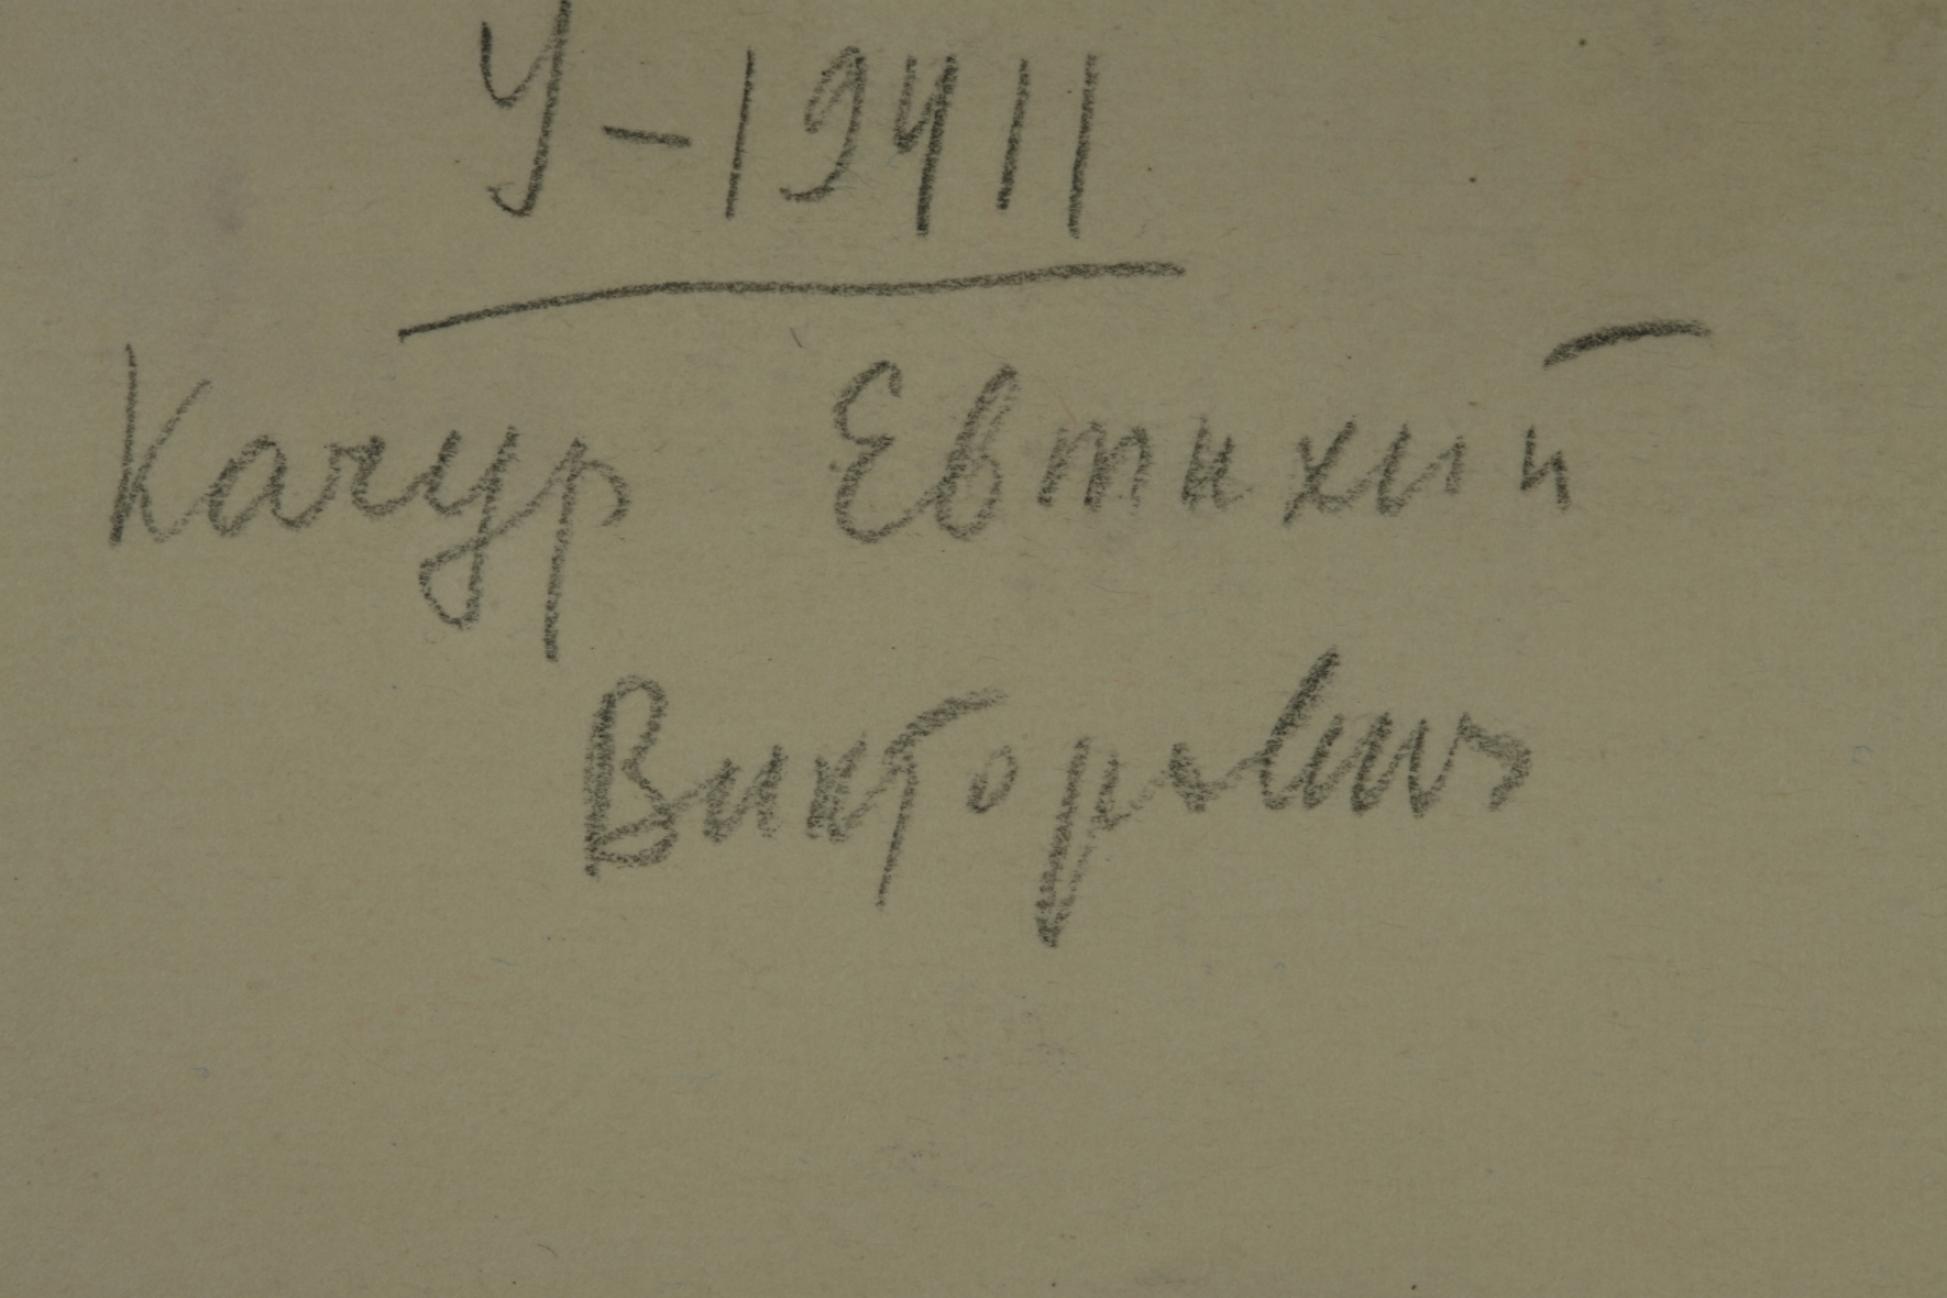 У-19411
Качур Евтихий
Викторович